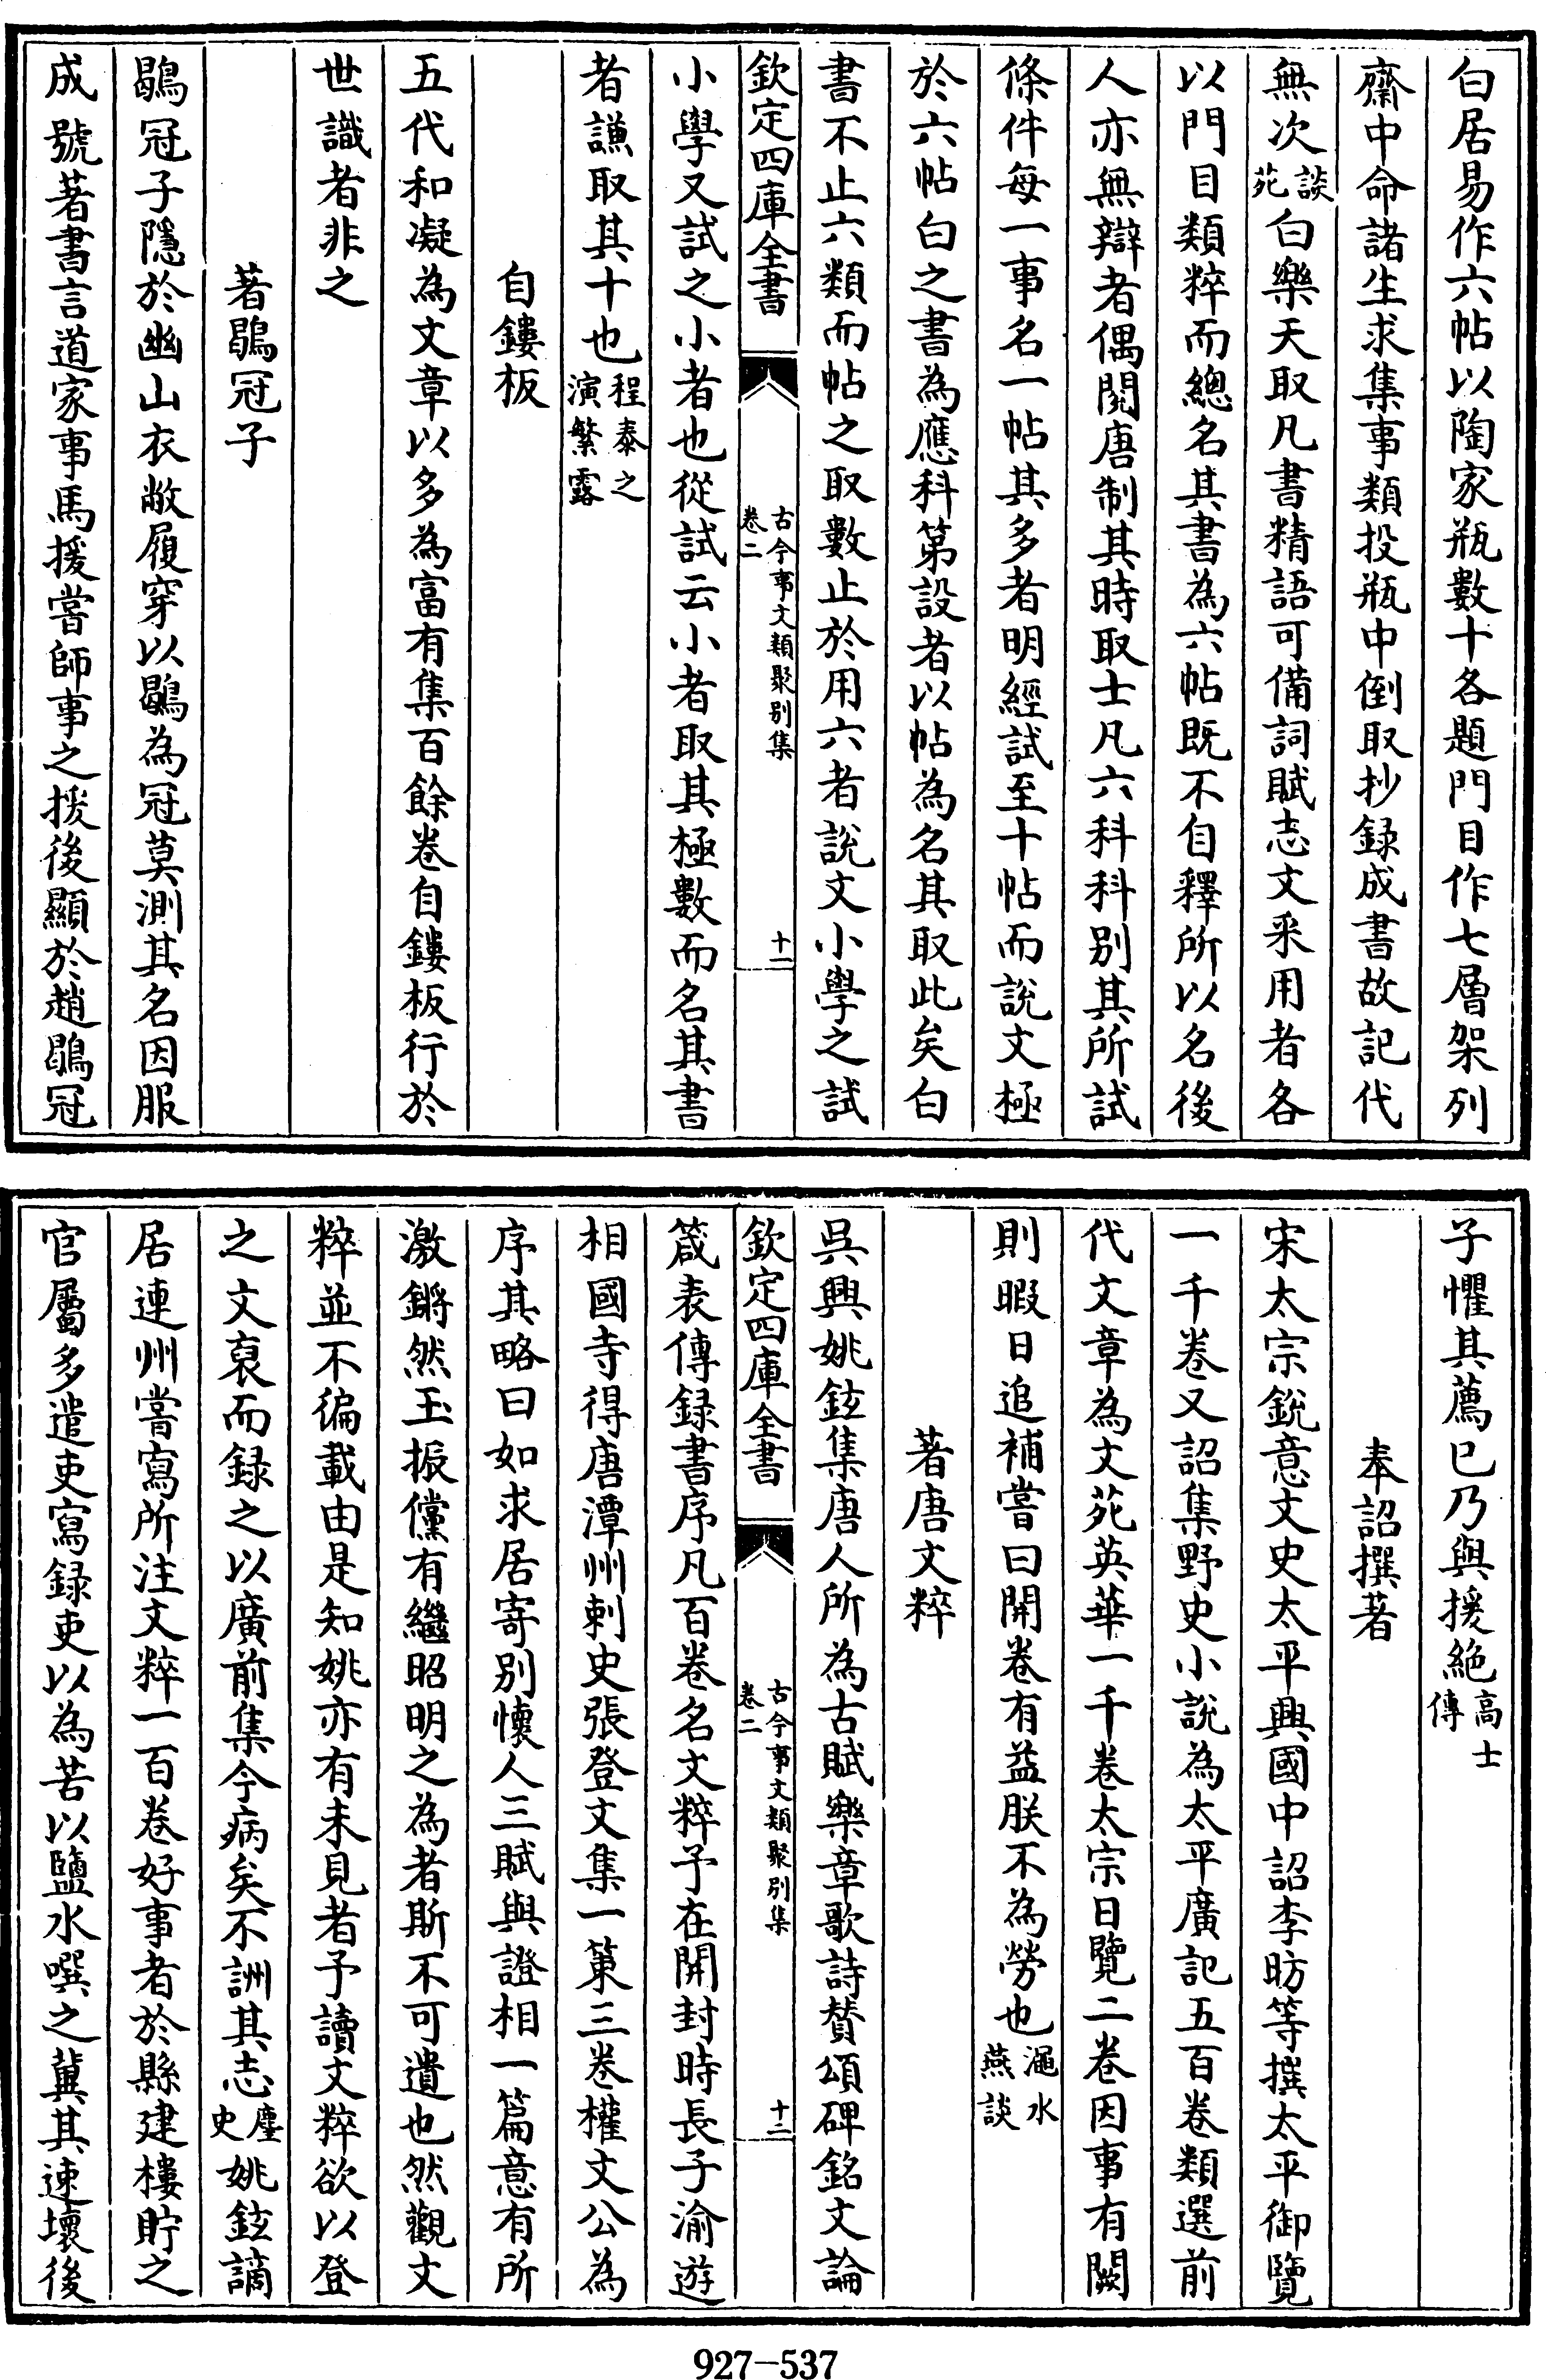 白居易作六帖以陶家瓶數十各題門目作七層架列
齋中命諸生求集事類投瓶中倒取抄録成書故記代
無次談苑白樂天取凡書精語可備詞賦志文采用者各
以門目類粹而總名其書為六帖既不自釋所以名後
人亦無辯者偶閱唐制其時取士凡六科科别其所試
條件每一事名一帖其多者明經試至十帖而說文極
於六帖白之書為應科第設者以帖為名其取此矣白
書不止六類而帖之取數止於用六者說文小學之試
欽定四庫全書
古今事文類聚别集
卷二
十一
小學又試之小者也從試云小者取其極數而名其書
者謙取其十也程泰之演繁露
自鏤板
五代和凝為文章以多為富有集百餘卷自鏤板行於
世識者非之
著鶡冠子
鶡冠子隱於幽山衣敝履穿以鶡為冠莫測其名因服
成號著書言道家事馬援嘗師事之援後顯於趙鶡冠
子懼其薦已乃與援絶高士傳
奉詔撰著
宋太宗銳意文史太平興國中詔李昉等撰太平御覽
一千卷又詔集野史小說為太平廣記五百卷類選前
代文章為文苑英華一千卷太宗日覽二卷因事有闕
則暇日追補嘗曰開卷有益朕不為勞也澠水燕談
著唐文粹
吳興姚鉉集唐人所為古賦樂章歌詩贊頌碑銘文論
欽定四庫全書
古今事文類聚别集
卷二
十二
箴表傳録書序凡百卷名文粹予在開封時長子渝遊
相國寺得唐潭州刺史張登文集一䇿三卷權文公為
序其略曰如求居寄别懷人三賦與證相一篇意有所
激鏘然玉振儻有繼昭明之為者斯不可遺也然觀文
粹並不徧載由是知姚亦有未見者予讀文粹欲以登
之文裒而録之以廣前集今病矣不詶其志麈史姚鉉謫
居連州嘗寫所注文粹一百卷好事者於縣建樓貯之
官屬多遣吏寫録吏以為苦以鹽水噀之冀其速壞後
927-537